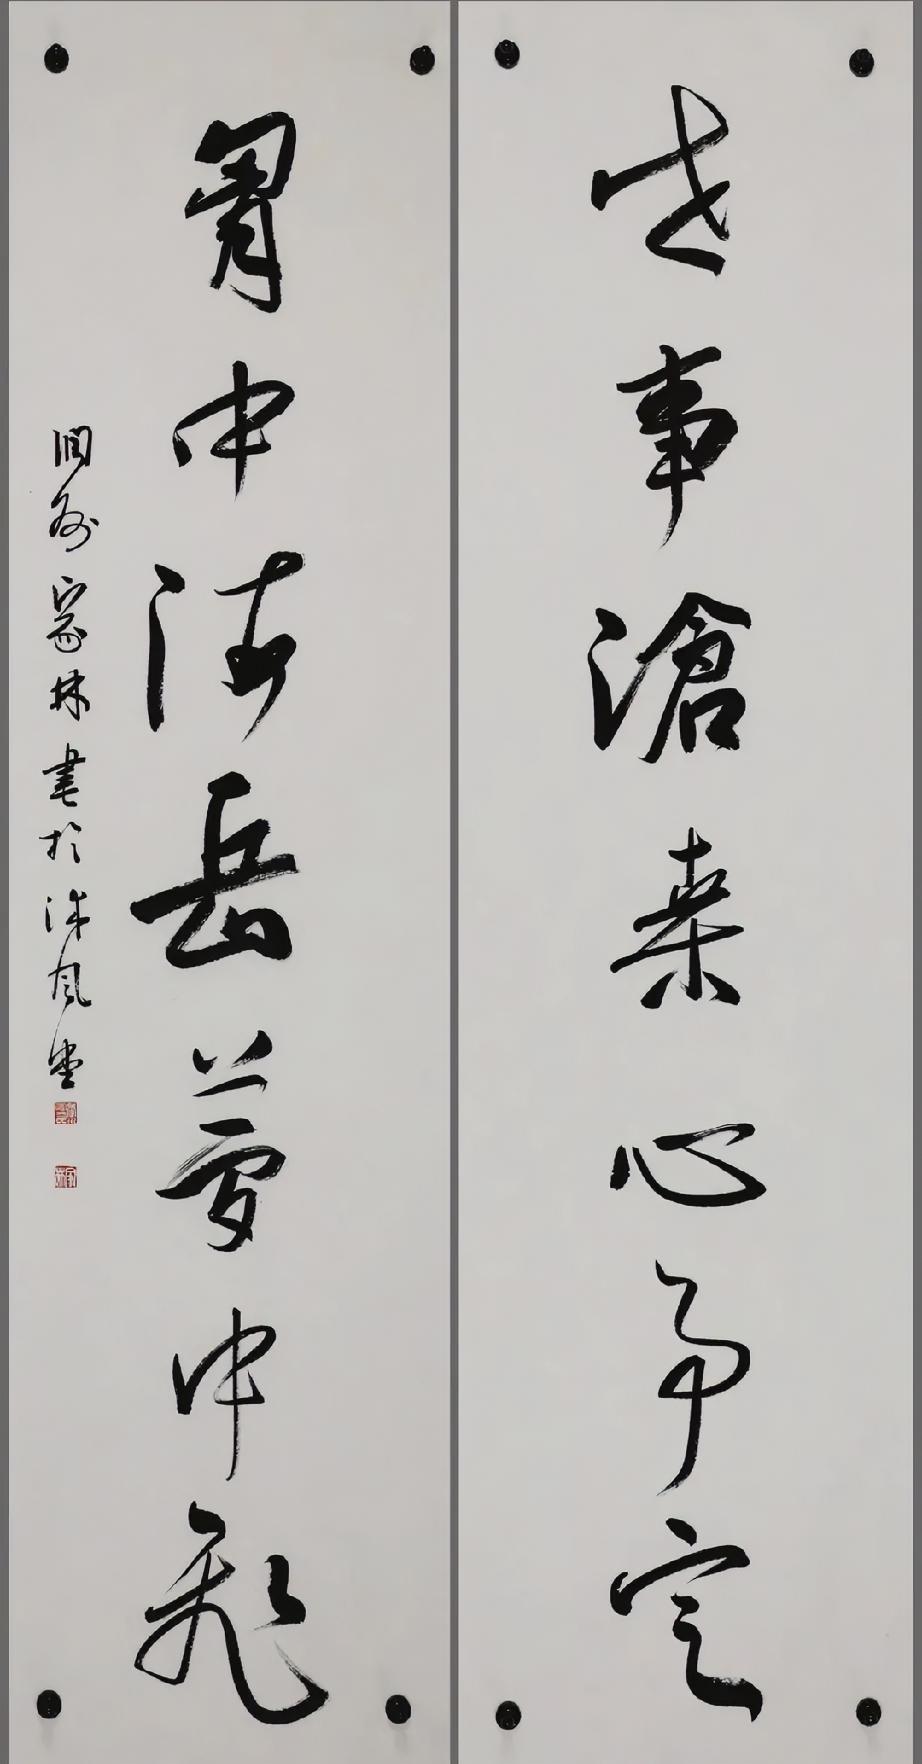 世事滄桑心事定
胷中海岳夢中飛
潤州家林書於沐風堂